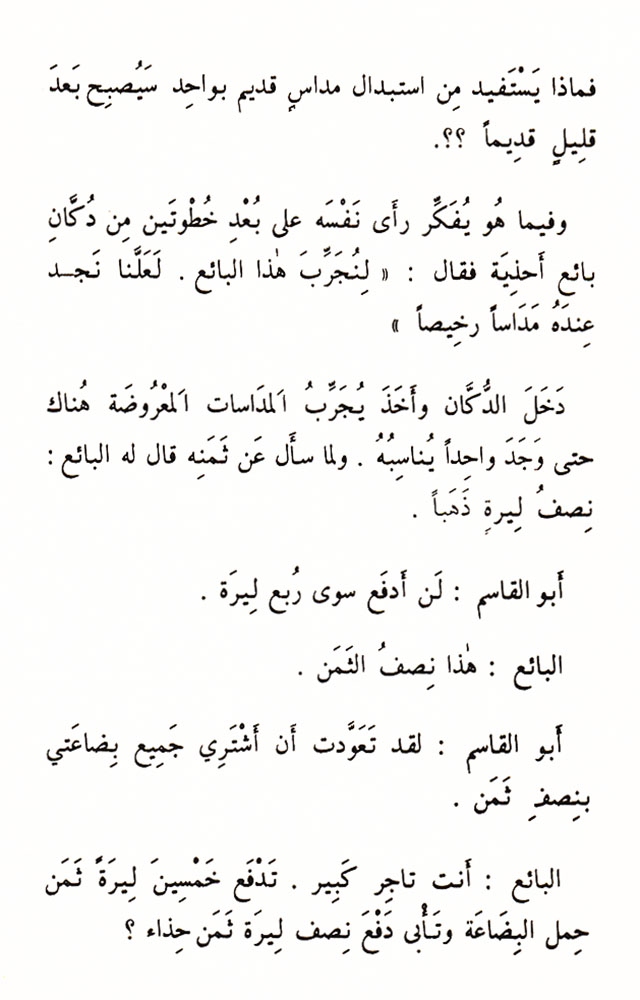 فماذا يَسْتَفيد مِن استبدال مداسٍ قديم بواحِد سَيُصبِح بَعدَ
قلِيلٍ قدِيماً ؟؟.
وفيما هُو يُفَكِّر رأَى نَفْسَه على بُعْدِ خُطوتَين مِن دُكَّانِ
بائع أَحذِيَة فقال : « لِنُجَرِّبَ هٰذا البائع . لَعَلَّنا نَجــد
عِندَهُ مَدَاساً رخِيصاً »
دَخَلَ الدُّكَّان وأَخَذَ يُجَرِّبُ المَدَاسات المَعْرُوضَة هُناك
حتى وَجَدَ واحِداً يُناسِبُهُ . ولما سأَل عَن ثَمَنِه قال له البائع :
نِصفُ لِيرةٍ ذَهَباً .
أَبو القاسم : لَن أَدفَع سوى رُبع لِيرَة .
البائع : هٰذا نِصفُ الثَمَن .
أَبو القاسم : لقد تَعَوَّدت أَن أَشْتَرِي جَمِيع بِضاعَتي
بنِصفِ ثَمَن .
البائع : أَنت تاجِر كَبِير . تَدْفَع خَمْسِينَ لِيرَةً ثَمَن
حِمل البِضَاعَة وتَأْبى دَفْعَ نِصف لِيرَة ثَمَن حِذاء ؟